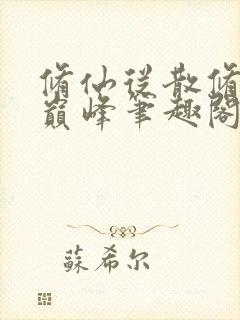 脩仙從散脩
巔峰筆趣閣
蘇希尔